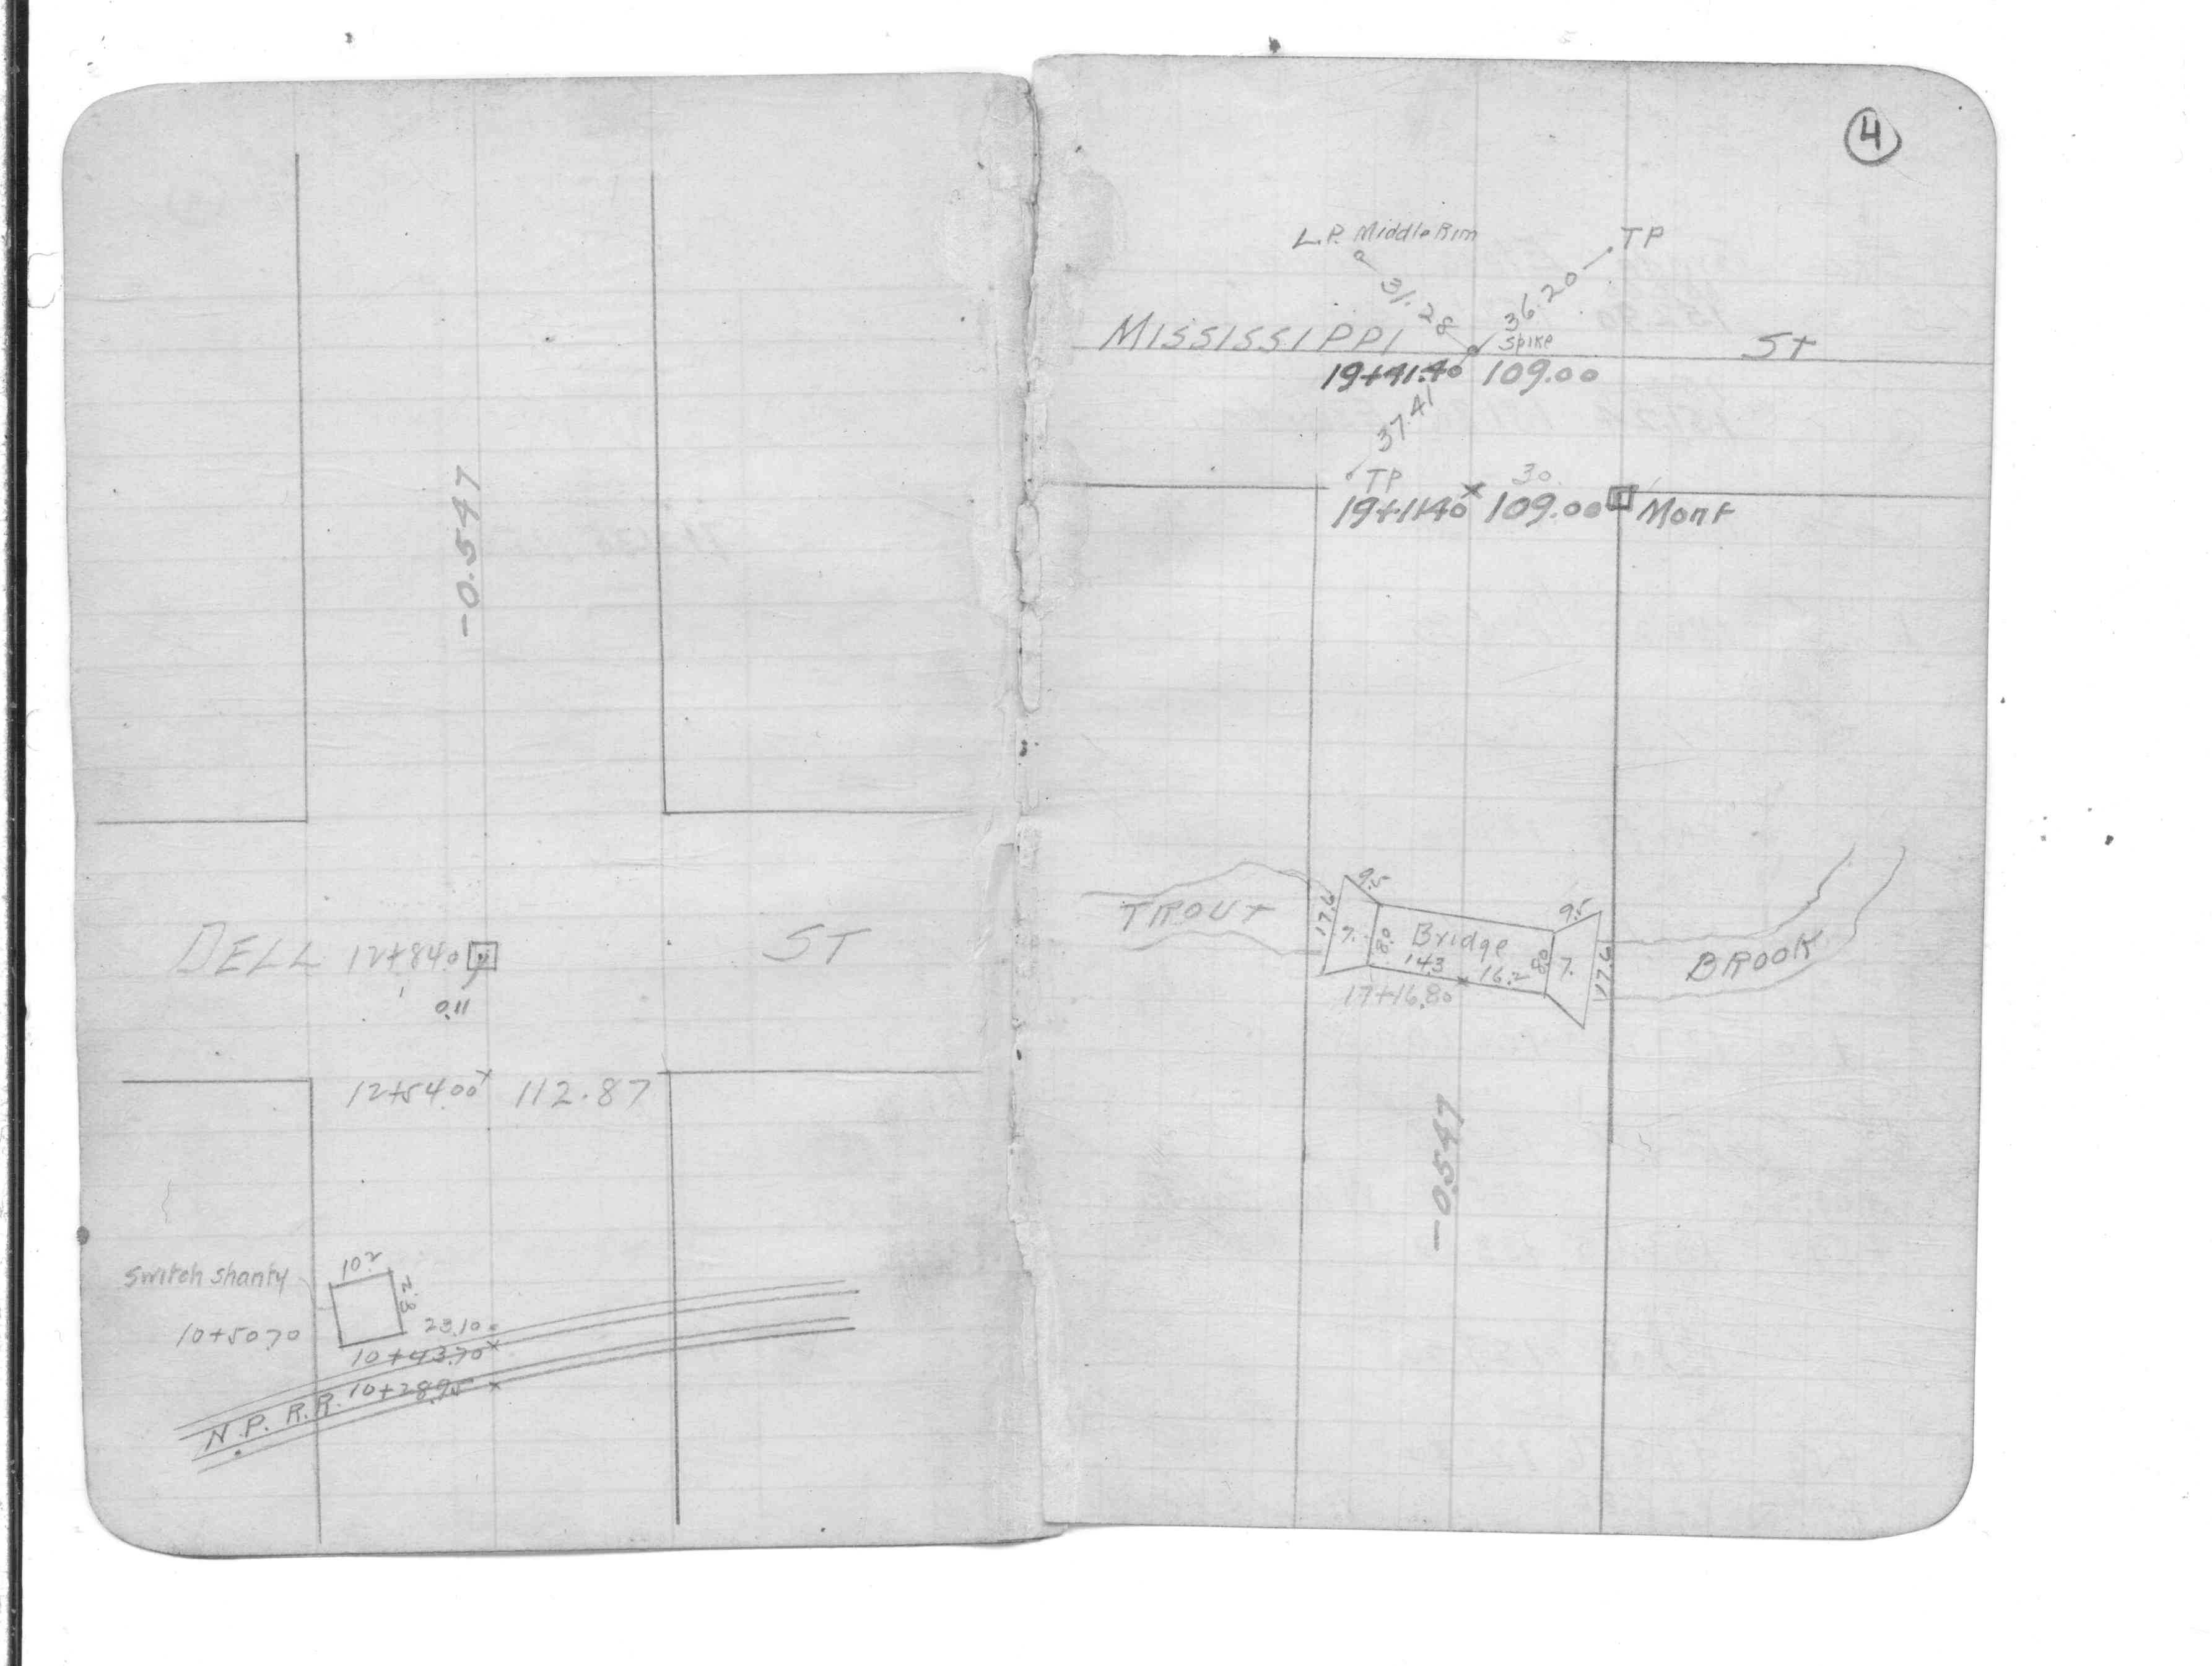 -0.547
DELL 12+84.0 ST
0.11
12+54.00 112.87
Switch Shanty
10.2
10+50.70
23.10
10+43.70
10+28.95
N.P. R.R.
4
L.P. Middle Rim
TP
31.28
36.20
MISSISSIPPI
Spike
St
19+41.40 109.00
37.41
TP
30.
19+11.40 109.00
Mont
TROUT
17.6
9.5
7.
8.0
Bridge
14.3
16.2
8.0
7.
9.5
17.6
BROOK
17+16.80
-0.547